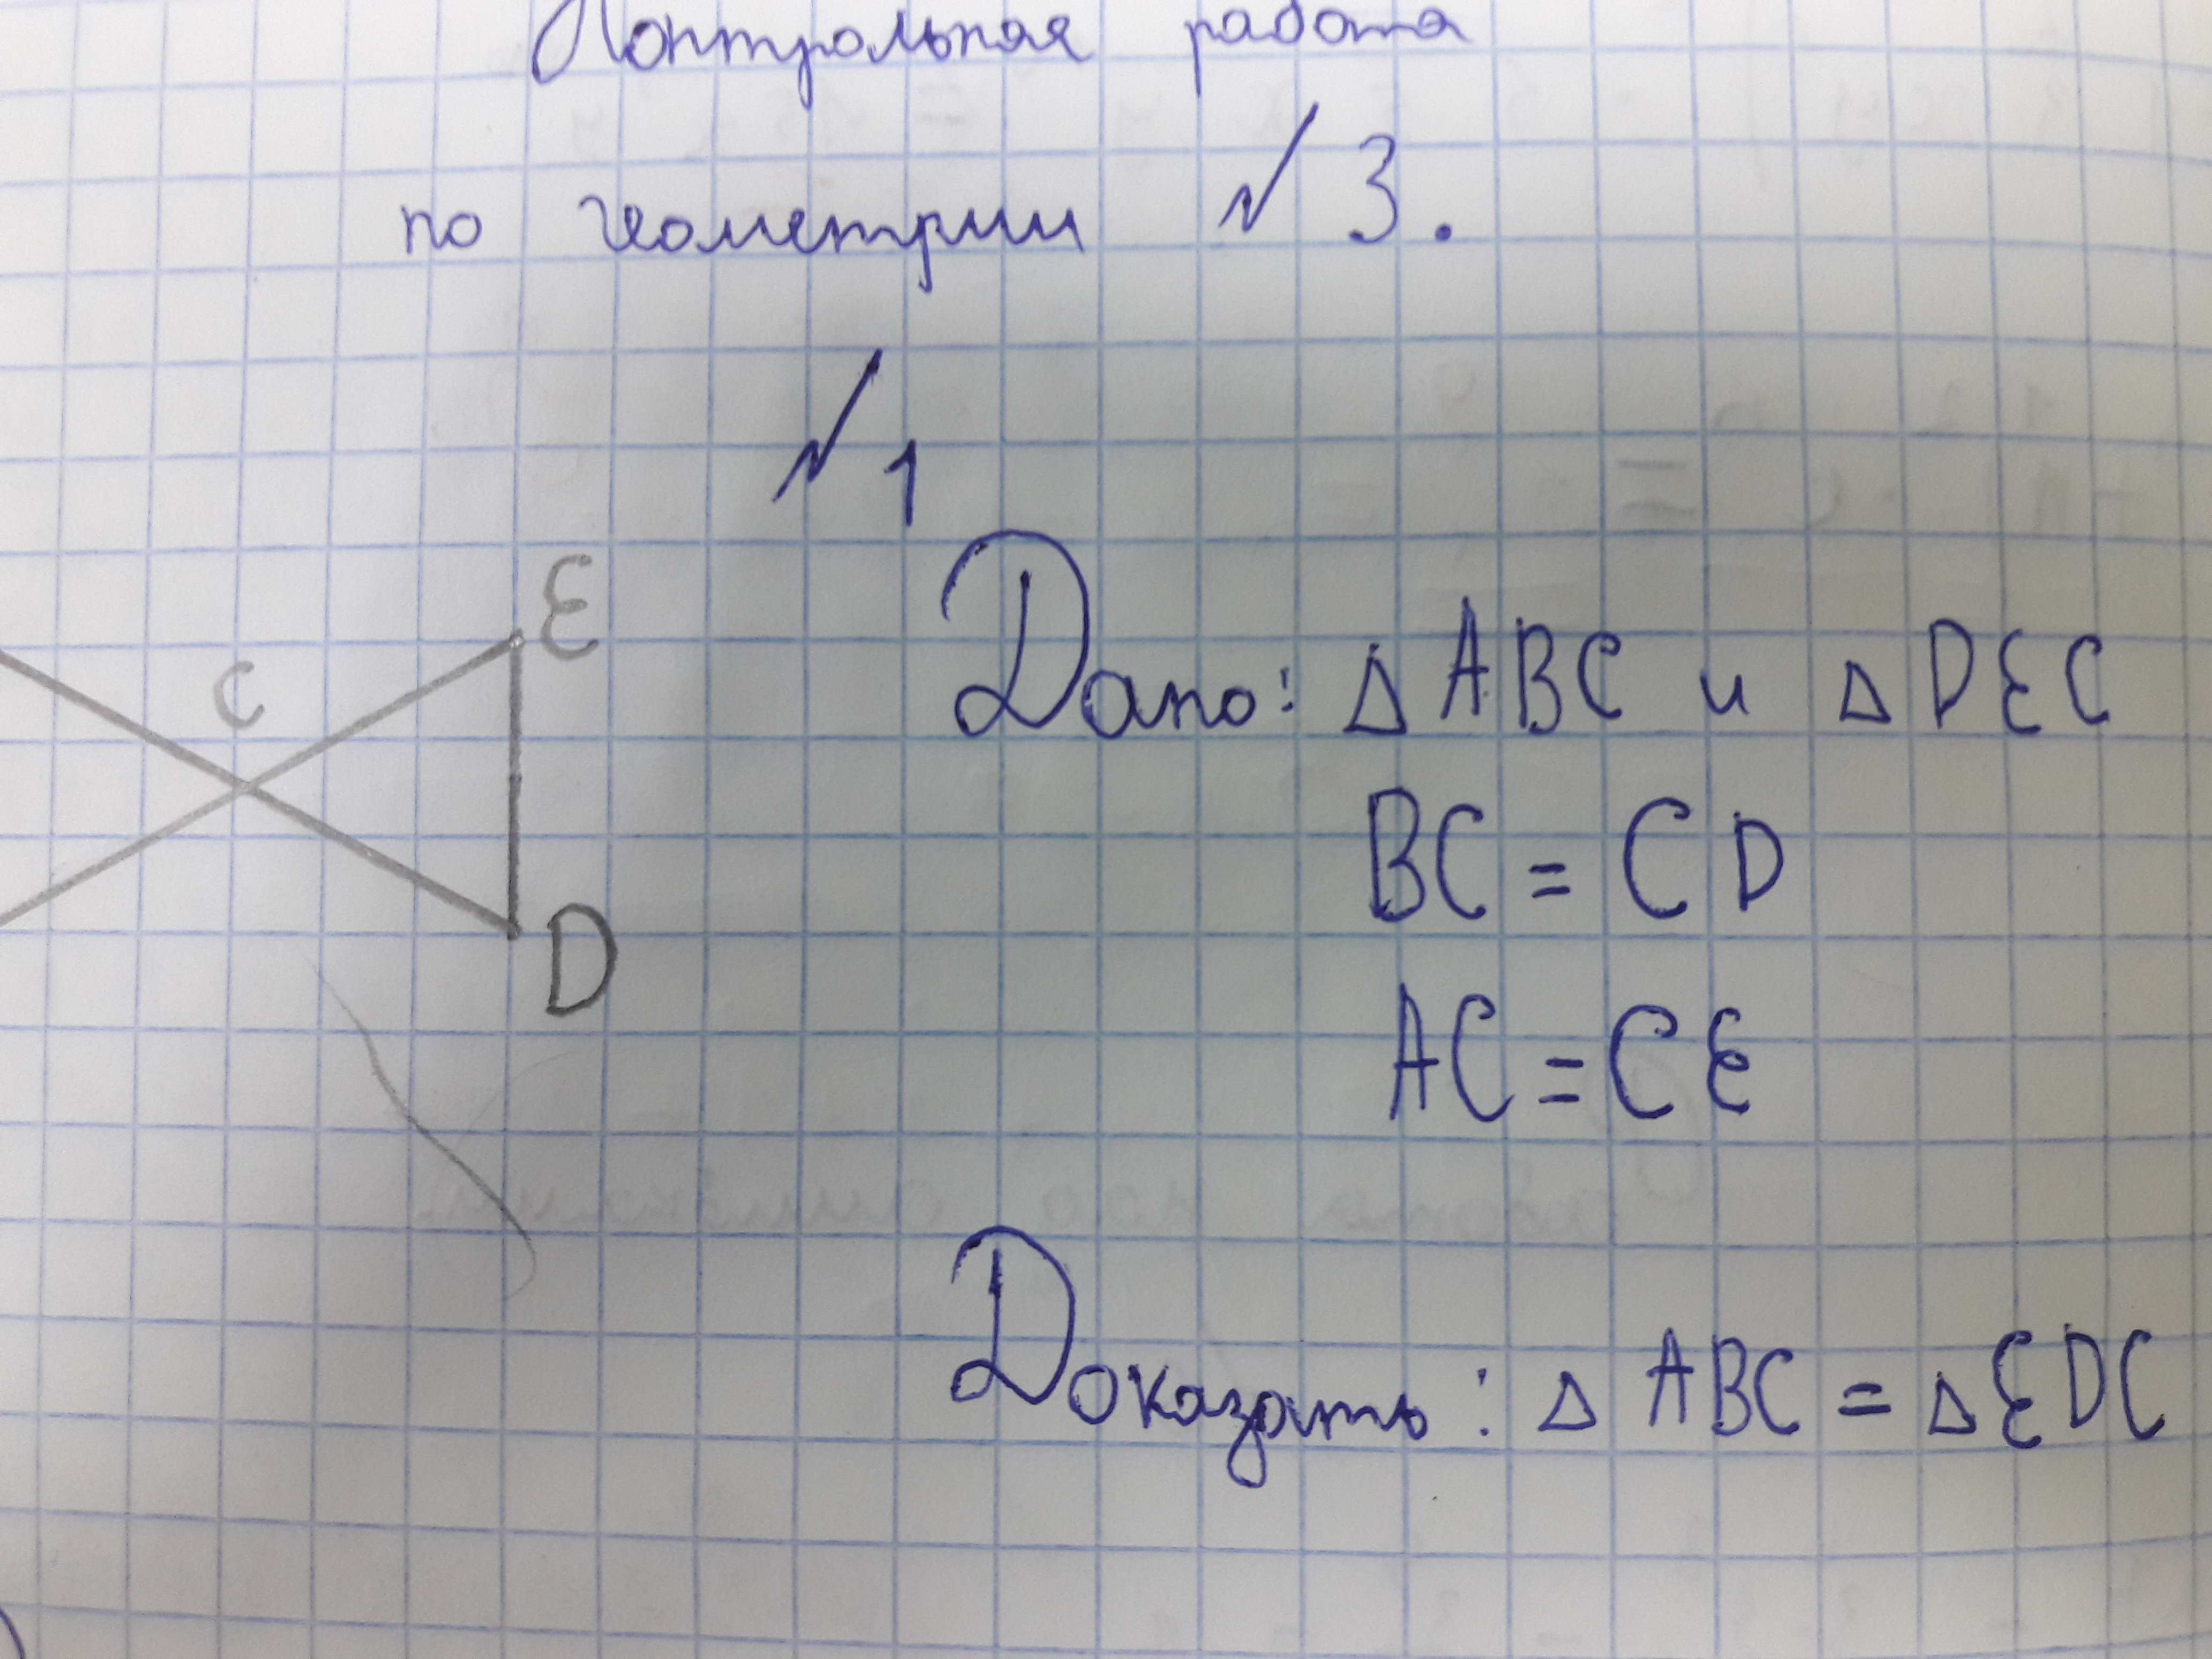 Контрольная работа
по геометрии №3.
№1
E
C
D
Дано: △ABC и △DEC
BC = CD
AC = CE
Доказать: △ABC = △EDC